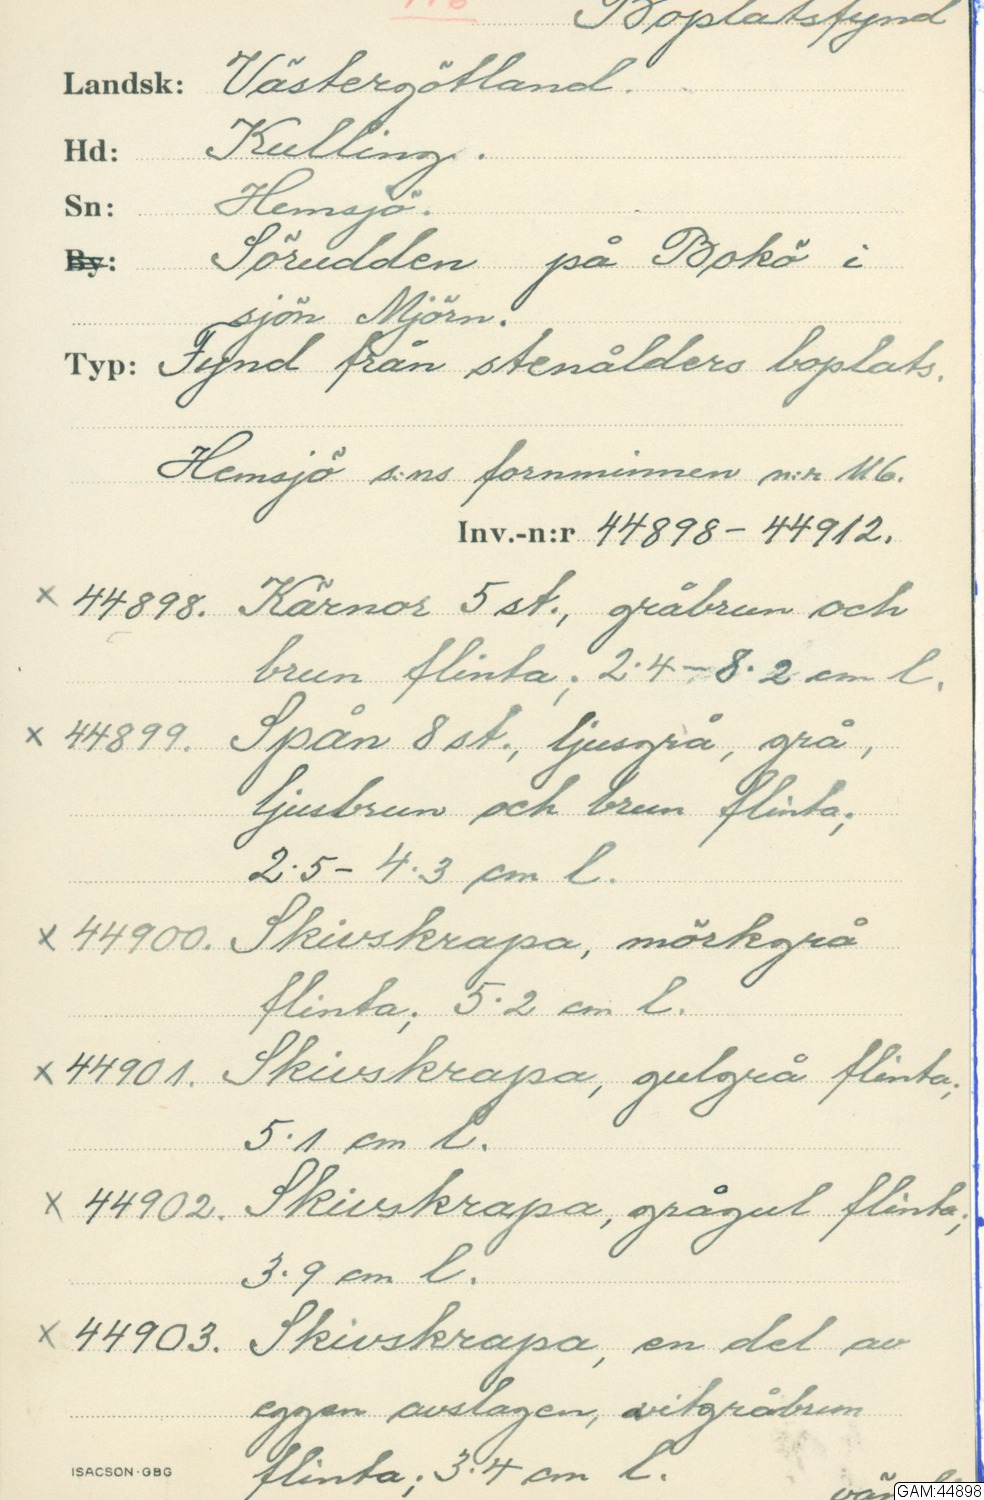 116
Boplatsfynd
Landsk: Västergötland.
Hd: Kulling.
Sn: Hemsjö.
By: Sörudden på Bokö i
sjön Mjörn.
Typ: Fynd från stenålders boplats.
Hemsjö s:ns fornminnen n:r 116.
Inv.-n:r 44898-44912.
x 44898. Kärnor 5 st., gråbrun och
brun flinta; 2.4-8.2 cm l.
x 44899. Spån 8 st., ljusgrå, grå,
ljusbrun och brun flinta;
2.5-4.3 cm l.
x 44900. Skivskrapa, mörkgrå
flinta; 5.2 cm l.
x 44901. Skivskrapa, gulgrå flinta;
5.1 cm l.
x 44902. Skivskrapa, grågul flinta;
3.9 cm l.
x 44903. Skivskrapa, en del av
eggen avslagen, vitgråbrun
flinta; 3.4 cm l.
ISACSON·GBG
GAM:44898